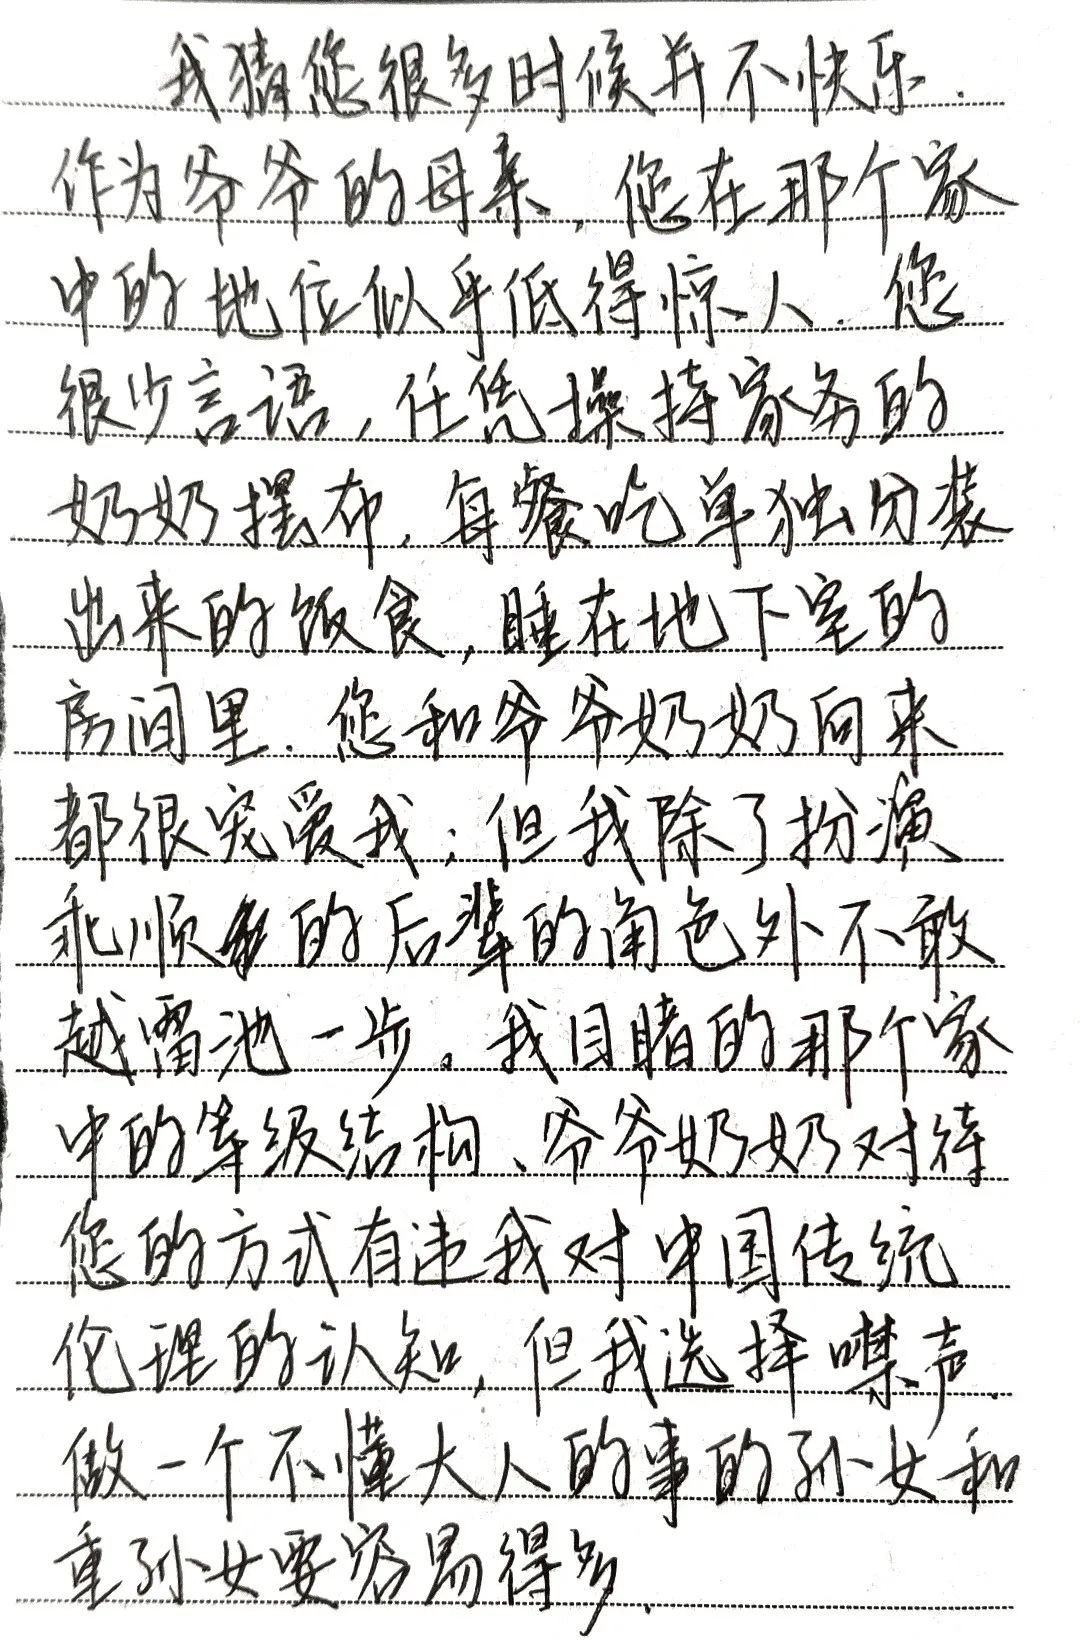 我猜您很多时候并不快乐.
作为爷爷的母亲,您在那个家
中的地位似乎低得惊人.您
很少言语,任凭操持家务的
奶奶摆布,每餐吃单独分装
出来的饭食,睡在地下室的
房间里.您和爷爷奶奶向来
都很宠爱我;但我除了扮演
乖顺的后辈的角色外不敢
越雷池一步。我目睹的那个家
中的等级结构、爷爷奶奶对待
您的方式有违我对中国传统
伦理的认知,但我选择噤声.
做一个不懂大人的事的孙女和
重孙女要容易得多.